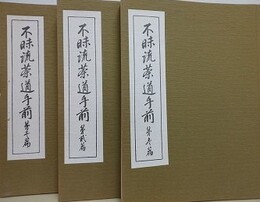 不昧流茶道手前 第壱篇
不昧流茶道手前 第弐篇
不昧流茶道手前 第参篇